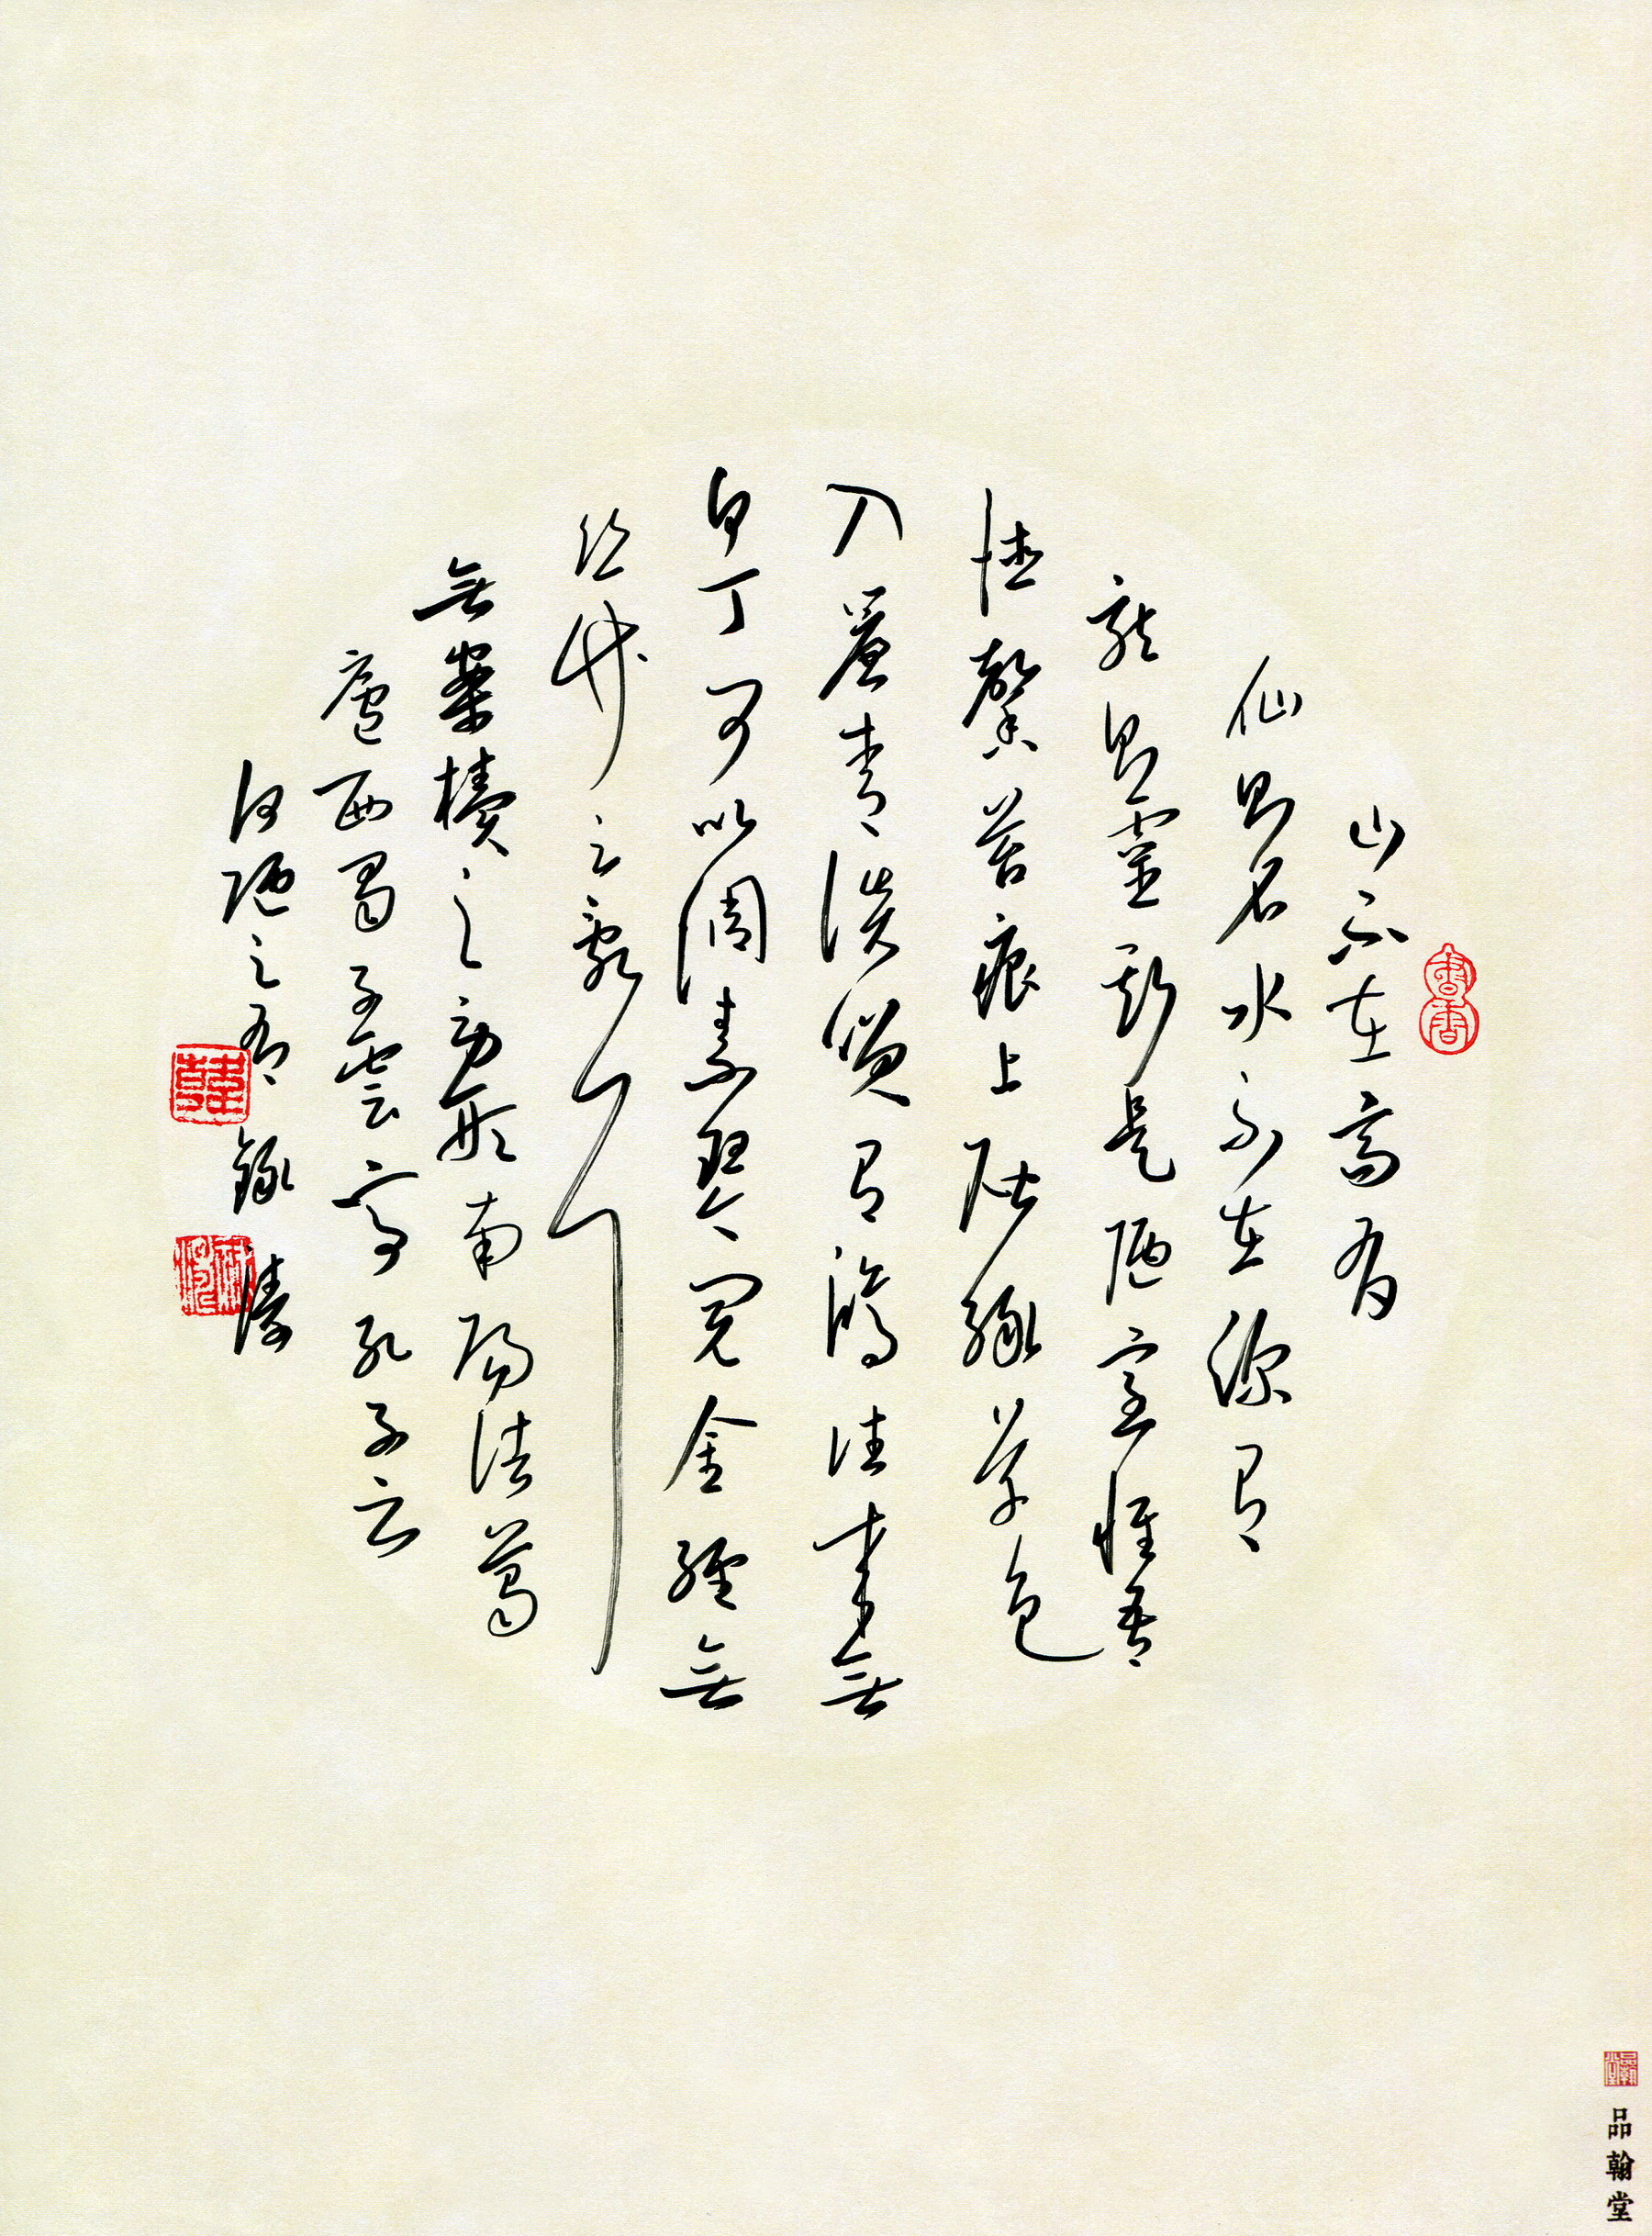 書香
山不在高有
仙則名水不在深有
龍則靈斯是陋室惟吾
德馨苔痕上階緑草色
入簾青談笑有鴻往来無
白丁可以調素琴閱金經無
絲竹之亂耳
無案牘之勞形南陽諸葛
廬西蜀子雲亭孔子云
何陋之有 錄
韓
品翰堂